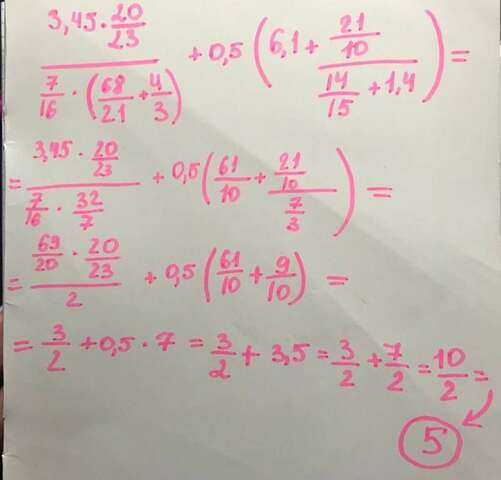 (3,45 · 20/23) / (7/16 · (68/21 + 4/3)) + 0,5 (6,1 + (21/10) / (14/15 + 1,4)) =
= (3,45 · 20/23) / (7/16 · 32/7) + 0,5 (61/10 + (21/10) / (7/3)) =
= (69/20 · 20/23) / 2 + 0,5 (61/10 + 9/10) =
= 3/2 + 0,5 · 7 = 3/2 + 3,5 = 3/2 + 7/2 = 10/2 =
5